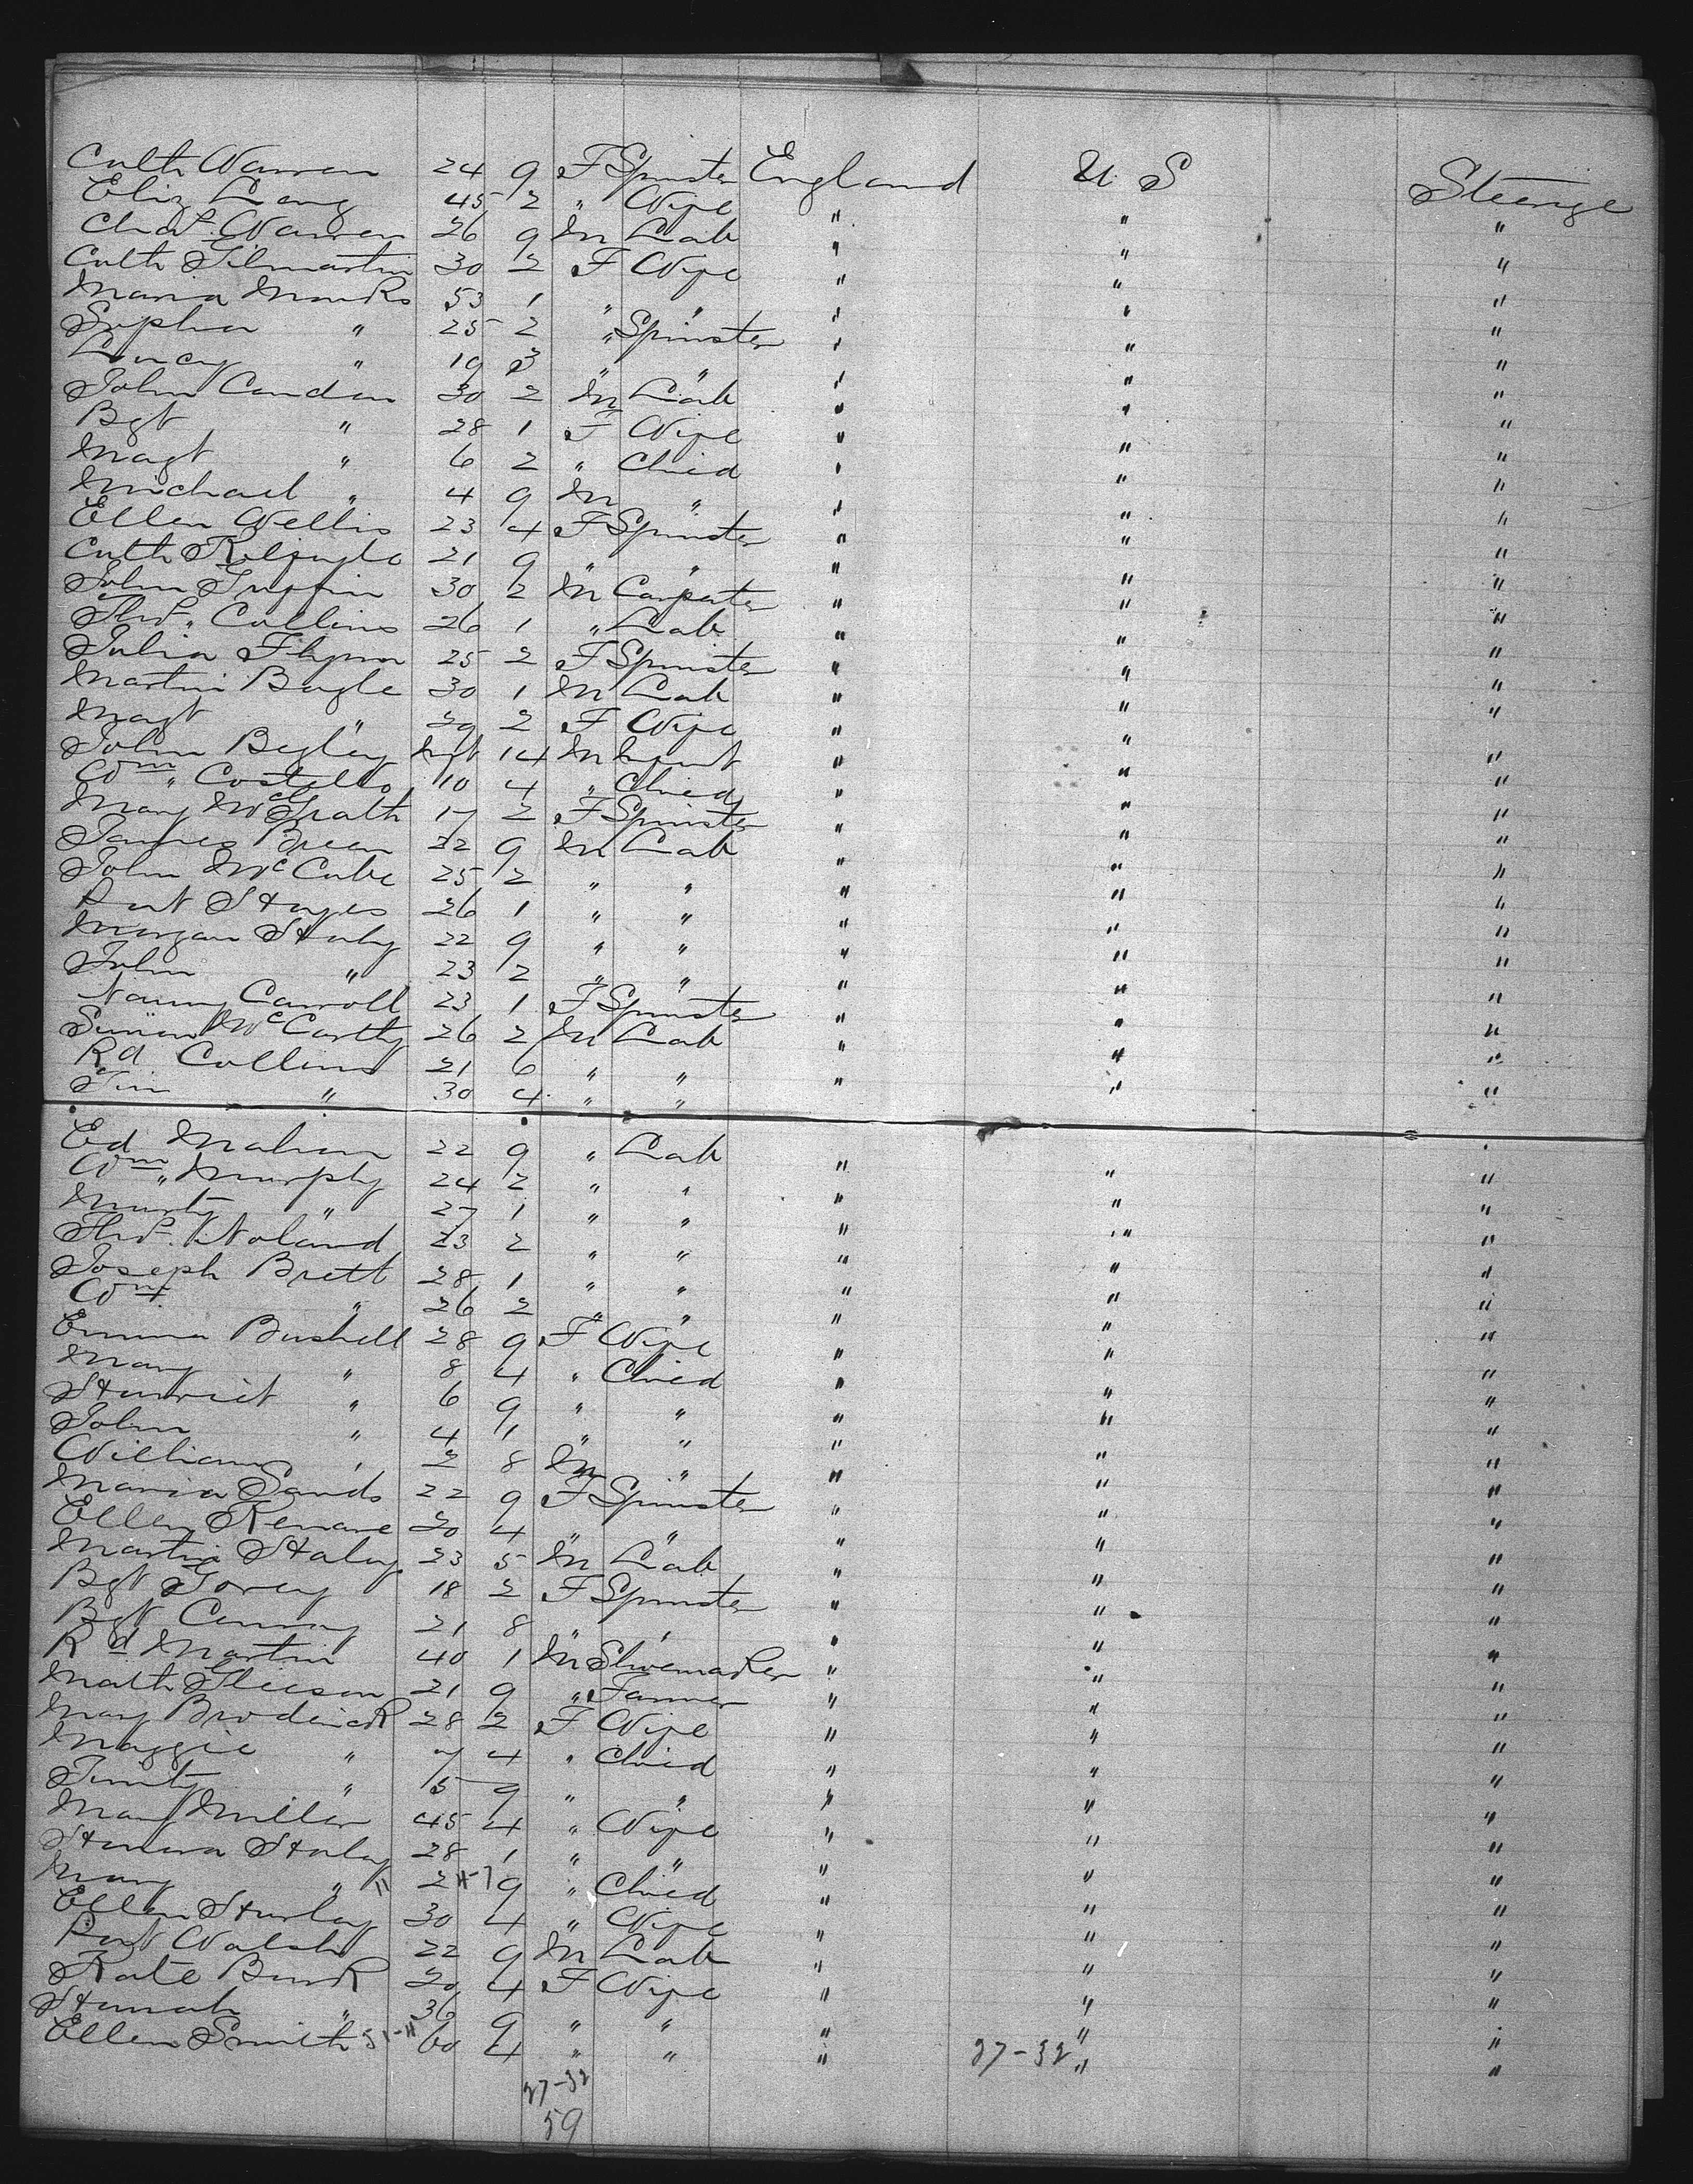 Cath Warren 24 9 F Spinster England U. S Steerage
Eliz Lang 45 2 " Wife " " "
Chas. Warren 26 9 M Lab " " "
Cath Gilmartin 30 2 F Wife " " "
Maria Monks 53 1 " " " " "
Sophia " 25 2 " Spinster " " "
Lucy " 19 3 " " " " "
John Condon 30 2 M Lab " " "
Bgt " 28 1 F Wife " " "
Magt " 6 2 " Child " " "
Michael " 4 9 M " " " "
Ellen Wellis 23 4 F Spinster " " "
Cath 21 9 " " " " "
John Griffin 30 2 M Carpenter " " "
Thos. Collins 26 1 " Lab " " "
Julia Flynn 25 2 F Spinster " " "
Martin Bugle 30 1 M Lab " " "
Magt " 29 2 F Wife " " "
John Begley Inft 14 M Infant " " "
Wm. Costello 10 4 " Child " " "
Mary McGrath 17 2 F Spinster " " "
James Breen 22 9 M Lab " " "
John McCabe 25 2 " " " " "
Pat Hayes 26 1 " " " " "
Morgan Healy 22 9 " " " " "
John " 23 2 " " " " "
Nanny Carroll 23 1 F Spinster " " "
Simon McCarthy 26 2 M Lab " " "
Rd Collins 21 6 " " " " "
Tim " 30 4 " " " " "
Ed Mahon 22 9 " Lab " " "
Wm. Murphy 24 2 " " " " "
Murty " 27 1 " " " " "
Thos. Noland 23 2 " " " " "
Joseph Brett 28 1 " " " " "
Wm. " 26 2 " " " " "
Emma Bushell 28 9 F Wife " " "
Mary " 8 4 " Child " " "
Harriet " 6 9 " " " " "
John " 4 1 " " " " "
William " 2 8 M " " " "
Maria Sands 22 9 F Spinster " " "
Ellen Kenane 20 4 " " " " "
Martin Haley 23 5 M Lab " " "
Bgt Torey 18 2 F Spinster " " "
Bgt 21 8 " " " " "
Rd Martin 40 1 M Shoemaker " " "
Math Gleeson 21 9 " Farmer " " "
Mary Broderick 28 2 F Wife " " "
Maggie " 7 4 " Child " " "
" 5 9 " " " " "
Mary Miller 45 4 " Wife " " "
Hanora Hurley 28 1 " " " " "
Mary " 11 2 H-7 9 " Child " " "
Ellen Hurley 30 4 " Wife " " "
Pat Walsh 22 9 M Lab " " "
Kate Burk 20 4 F Wife " " "
Hannah " 36 9 " " " " "
Ellen Smith 51-11 60 4 " " " 27-32 " "
27-32
59